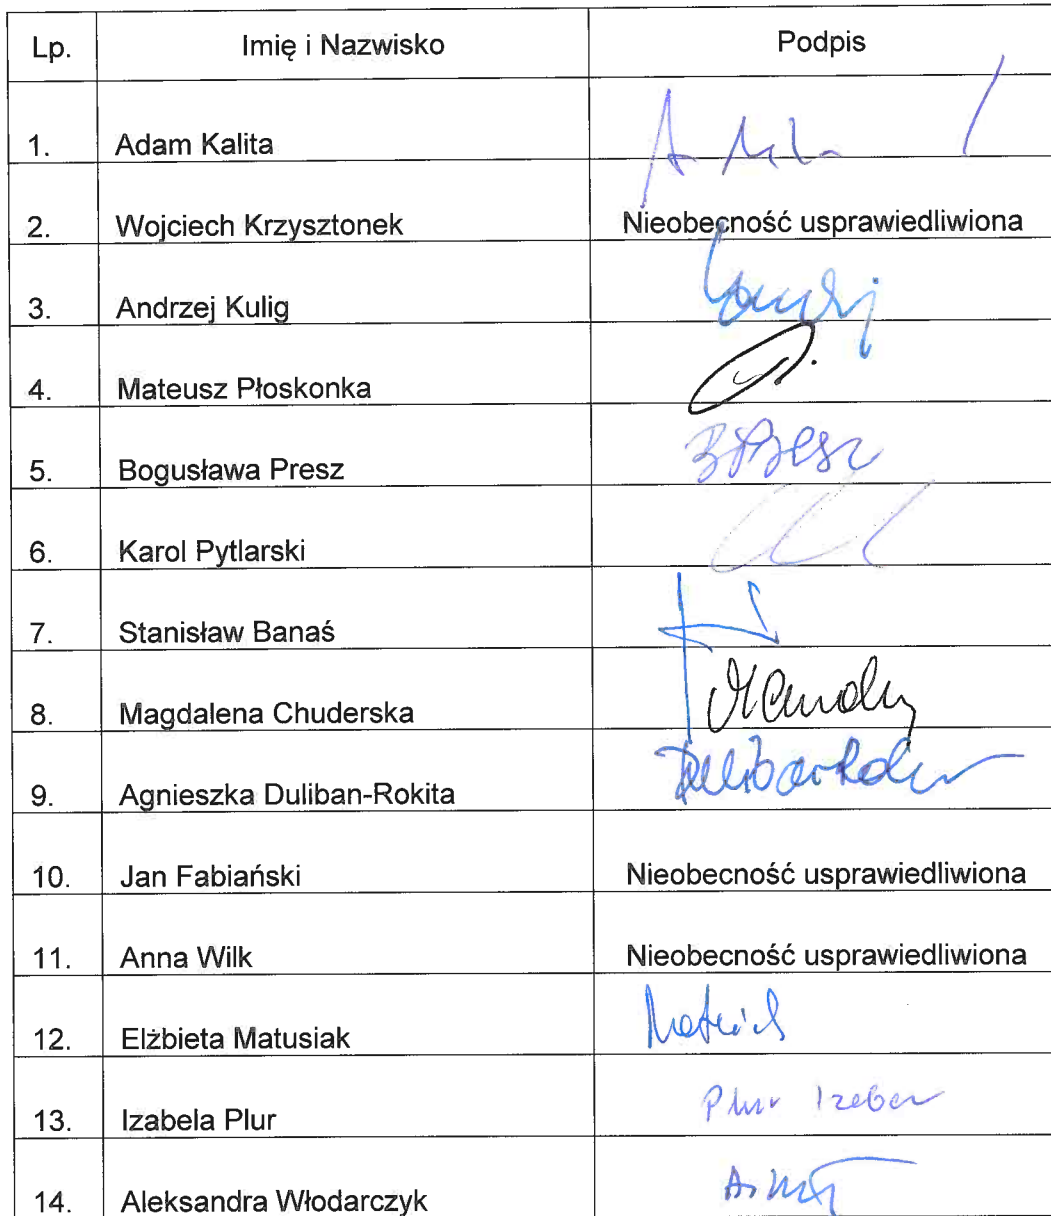 Lp. Imię i Nazwisko Podpis
1. Adam Kalita
2. Wojciech Krzysztonek Nieobecność usprawiedliwiona
3. Andrzej Kulig
4. Mateusz Płoskonka
5. Bogusława Presz BPresz
6. Karol Pytlarski
7. Stanisław Banaś
8. Magdalena Chuderska
9. Agnieszka Duliban-Rokita
10. Jan Fabiański Nieobecność usprawiedliwiona
11. Anna Wilk Nieobecność usprawiedliwiona
12. Elżbieta Matusiak
13. Izabela Plur Plur Izabela
14. Aleksandra Włodarczyk